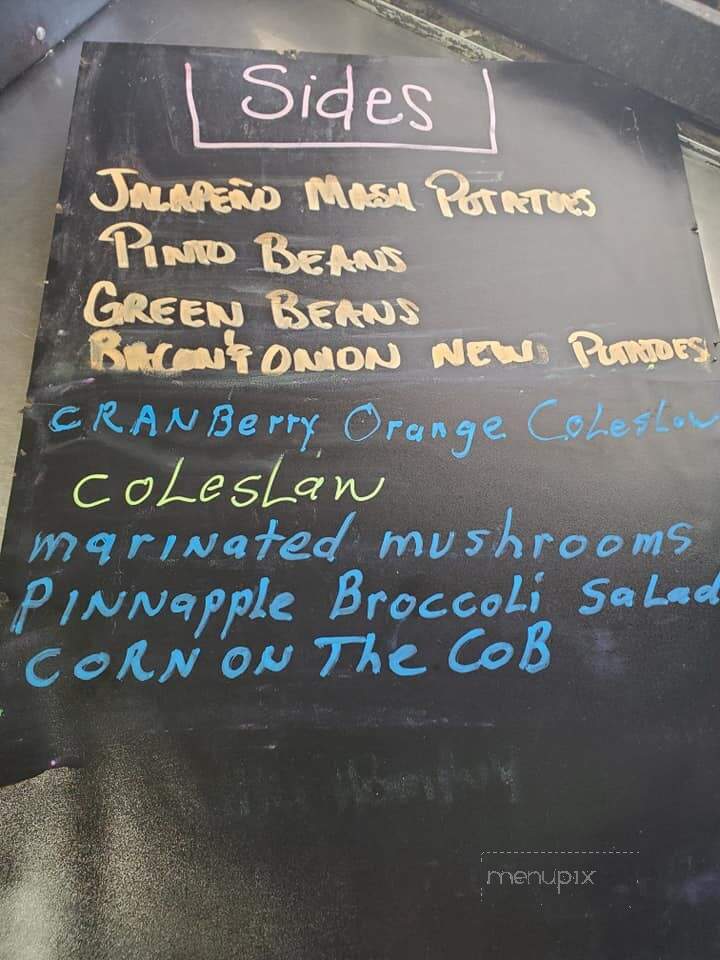 Sides
JALAPEÑO MASH POTATOES
PINTO BEANS
GREEN BEANS
BACON & ONION NEW POTATOES
CRANBerry Orange Coleslaw
Coleslaw
marinated mushrooms
PINNapple Broccoli Salad
CORN ON The CoB
menupix